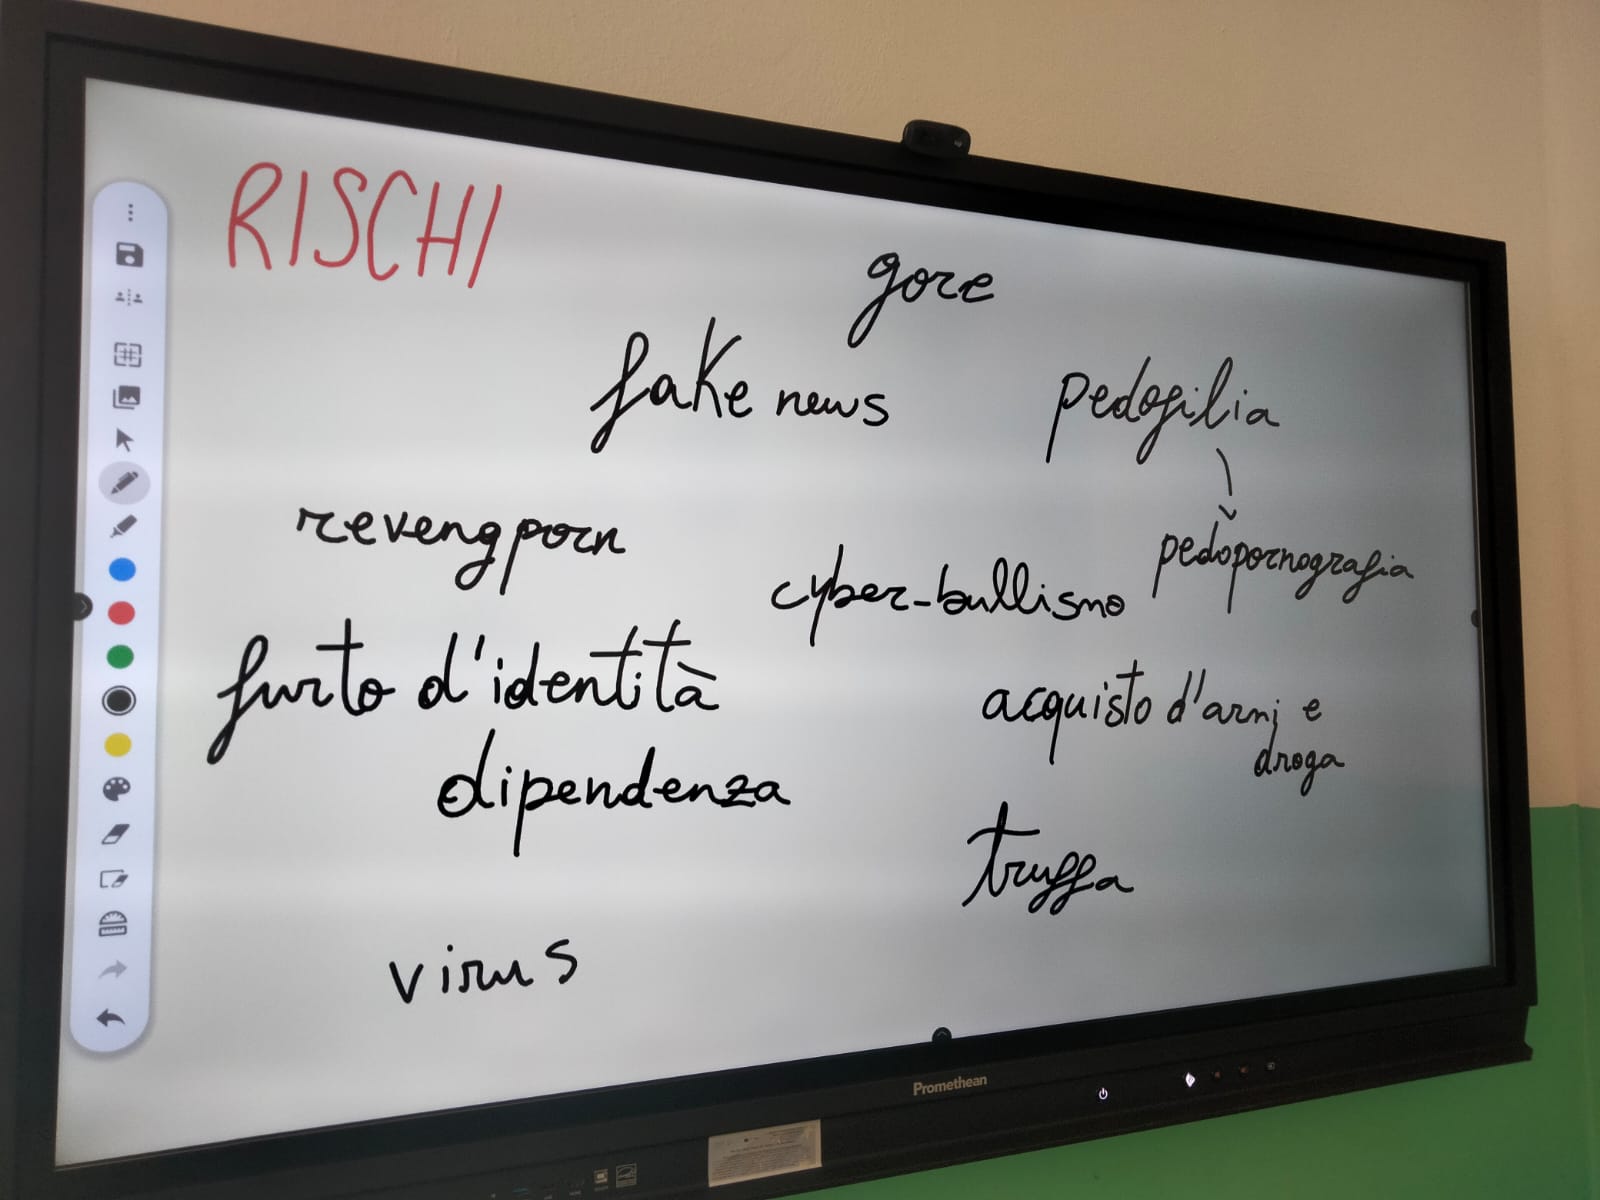 RISCHI
gore
fake news
pedofilia
revengporn
pedopornografia
cyber-bullismo
furto d'identità
acquisto d'armi e
droga
dipendenza
truffa
virus
Promethean